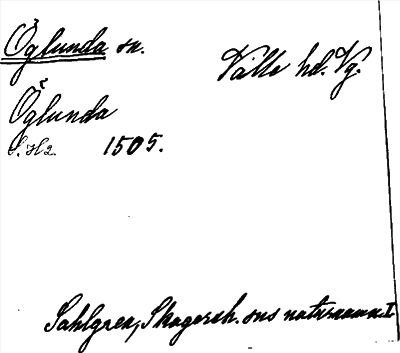 Öglunda sn.
Valle hd. Vg.
Öglunda
1505.
Sahlgren, Skagersh. sns naturnamn I